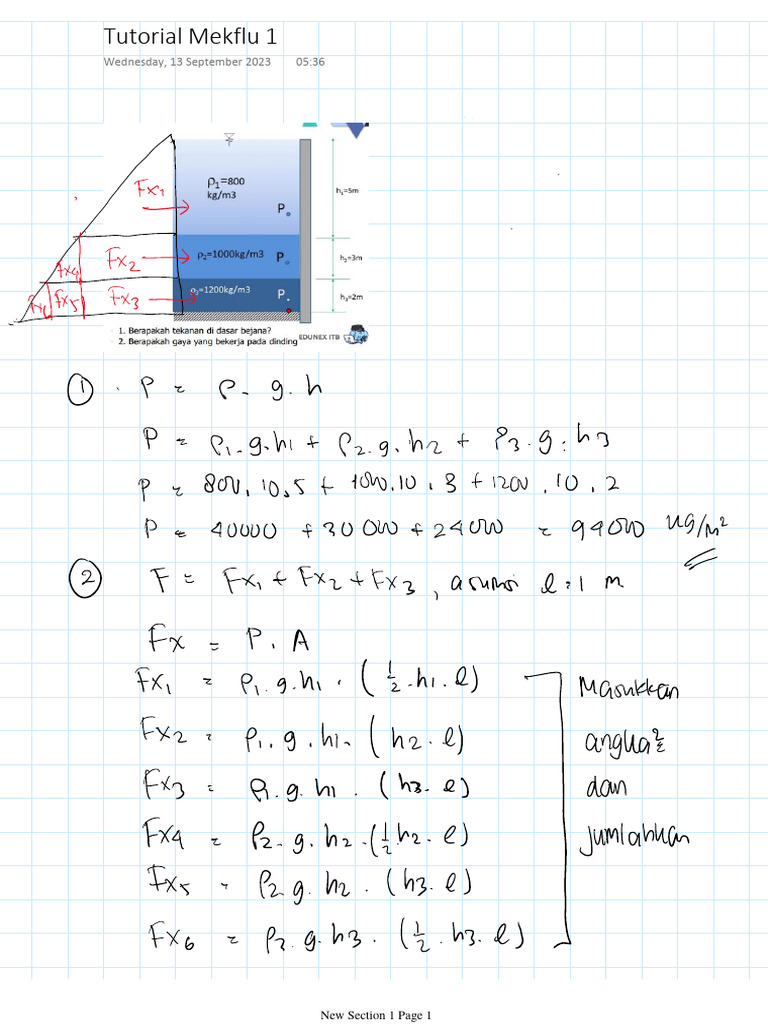 Tutorial Mekflu 1
Wednesday, 13 September 2023 05:36
ρ1=800
kg/m3
Fx1
P
h1=5m
Fx2
ρ2=1000kg/m3
P
h2=3m
Fx4
Fx5
Fx3
ρ3=1200kg/m3
P
h3=2m
1. Berapakah tekanan di dasar bejana?
2. Berapakah gaya yang bekerja pada dinding
EDUNEX ITB
① . P = ρ. g. h
P = ρ1. g. h1 + ρ2. g. h2 + ρ3. g. h3
P = 800. 10. 5 + 1000. 10. 3 + 1200. 10. 2
P = 40000 + 30000 + 24000 = 94000 kg/m²
② F = Fx1 + Fx2 + Fx3, asumsi l = 1 m
Fx = P. A
Fx1 = ρ1. g. h1. (½. h1. l)
Masukkan
Fx2 = ρ1. g. h1. (h2. l)
angka²
Fx3 = ρ1. g. h1. (h3. l)
dan
Fx4 = ρ2. g. h2. (½ h2. l)
jumlahkan
Fx5 = ρ2 g. h2. (h3. l)
Fx6 = ρ3. g. h3. (½. h3. l)
New Section 1 Page 1